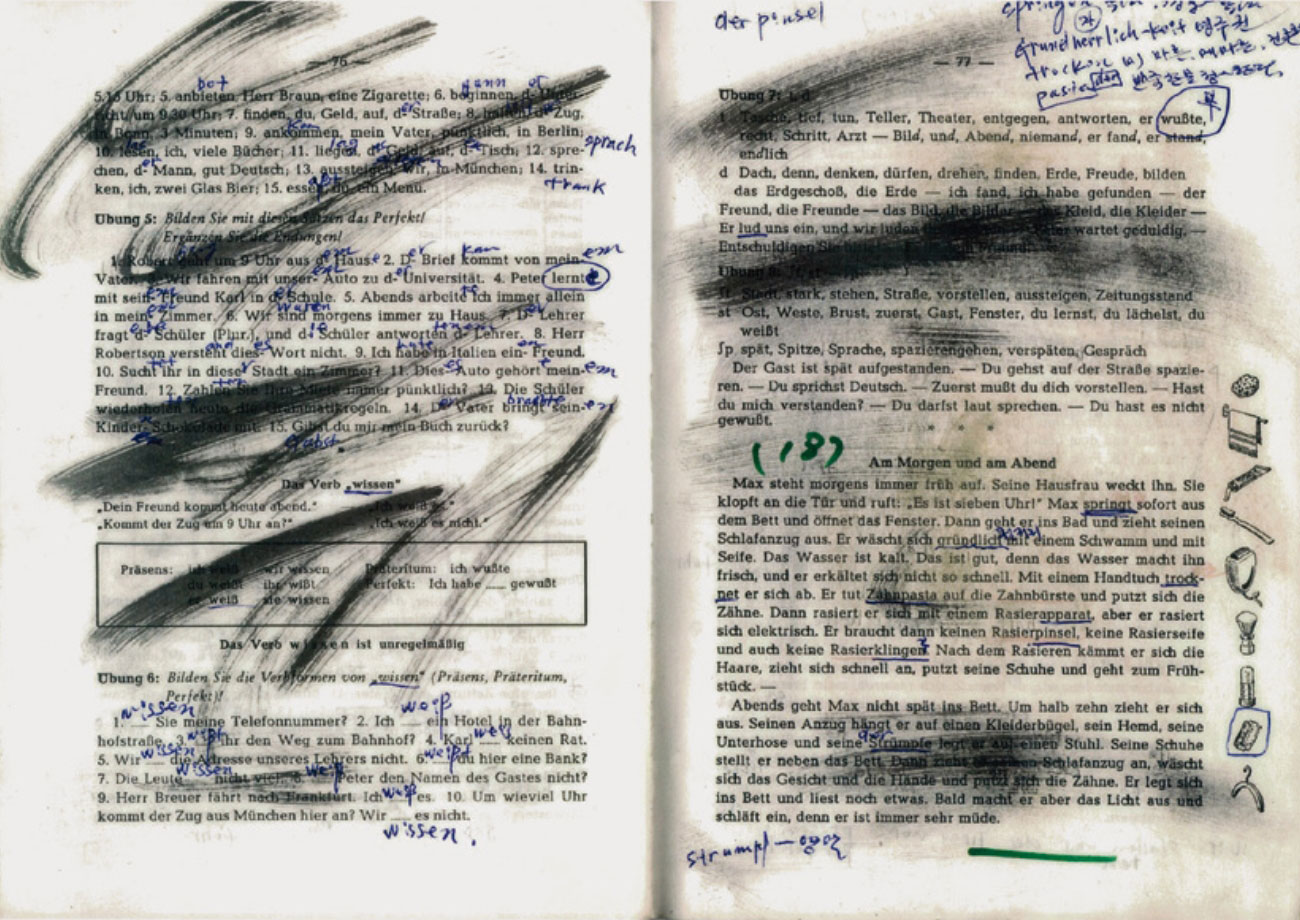 — 76 —
5.15 Uhr; 5. anbieten, Herr Braun, eine Zigarette; 6. beginnen, d- Unter-
richt, um 9.30 Uhr; 7. finden, du, Geld, auf, d- Straße; 8. halten, d- Zug,
in Bonn, 3 Minuten; 9. ankommen, mein Vater, pünktlich, in Berlin;
10. lesen, ich, viele Bücher; 11. liegen, d- Geld, auf, d- Tisch; 12. spre-
chen, d- Mann, gut Deutsch; 13. aussteigen, wir, in München; 14. trin-
ken, ich, zwei Glas Bier; 15. essen, du, ein Menü.
bot
sprach
trank
Übung 5: Bilden Sie mit diesen Sätzen das Perfekt!
Ergänzen Sie die Endungen!
1. Robert geht um 9 Uhr aus d- Haus. 2. D- Brief kommt von mein-
Vater. 3. Wir fahren mit unser- Auto zu d- Universität. 4. Peter lernt
mit sein- Freund Karl in d- Schule. 5. Abends arbeite ich immer allein
in mein- Zimmer. 6. Wir sind morgens immer zu Haus. 7. D- Lehrer
fragt d- Schüler (Plur.), und d- Schüler antworten d- Lehrer. 8. Herr
Robertson versteht dies- Wort nicht. 9. Ich habe in Italien ein- Freund.
10. Sucht ihr in dieser Stadt ein Zimmer? 11. Dies- Auto gehört mein-
Freund. 12. Zahlen Sie Ihre Miete immer pünktlich? 13. Die Schüler
wiederholen heute die Grammatikregeln. 14. D- Vater bringt sein-
Kinder- Schokolade mit. 15. Gibst du mir mein Buch zurück?
Das Verb „wissen"
„Dein Freund kommt heute abend." „Ich weiß es."
„Kommt der Zug um 9 Uhr an?" „Ich weiß es nicht."
Präsens: ich weiß wir wissen Präteritum: ich wußte
du weißt ihr wißt Perfekt: Ich habe ___ gewußt
er weiß sie wissen
Das Verb wissen ist unregelmäßig
Übung 6: Bilden Sie die Verbformen von „wissen" (Präsens, Präteritum,
Perfekt)!
wissen weiß
1. ___ Sie meine Telefonnummer? 2. Ich ___ ein Hotel in der Bahn-
hofstraße. 3. ___ ihr den Weg zum Bahnhof? 4. Karl ___ keinen Rat.
5. Wir ___ die Adresse unseres Lehrers nicht. 6. ___ du hier eine Bank?
7. Die Leute ___ nicht viel. 8. ___ Peter den Namen des Gastes nicht?
9. Herr Breuer fährt nach Frankfurt. Ich ___ es. 10. Um wieviel Uhr
kommt der Zug aus München hier an? Wir ___ es nicht.
wissen.
der pinsel
— 77 —
Übung 7: t, d
t Tasche, tief, tun, Teller, Theater, entgegen, antworten, er wußte,
recht, Schritt, Arzt — Bild, und, Abend, niemand, er fand, er stand,
endlich
d Dach, denn, denken, dürfen, drehen, finden, Erde, Freude, bilden
das Erdgeschoß, die Erde — ich fand, ich habe gefunden — der
Freund, die Freunde — das Bild, die Bilder — das Kleid, die Kleider —
Er lud uns ein, und wir luden wartet geduldig. —
Entschuldigen Sie
Übung 8:
St Stadt, stark, stehen, Straße, vorstellen, aussteigen, Zeitungsstand
st Ost, Weste, Brust, zuerst, Gast, Fenster, du lernst, du lächelst, du
weißt
Sp spät, Spitze, Sprache, spazierengehen, verspäten, Gespräch
Der Gast ist spät aufgestanden. — Du gehst auf der Straße spazie-
ren. — Du sprichst Deutsch. — Zuerst mußt du dich vorstellen. — Hast
du mich verstanden? — Du darfst laut sprechen. — Du hast es nicht
gewußt.
(18)
Am Morgen und am Abend
Max steht morgens immer früh auf. Seine Hausfrau weckt ihn. Sie
klopft an die Tür und ruft: „Es ist sieben Uhr!" Max springt sofort aus
dem Bett und öffnet das Fenster. Dann geht er ins Bad und zieht seinen
Schlafanzug aus. Er wäscht sich gründlich mit einem Schwamm und mit
Seife. Das Wasser ist kalt. Das ist gut, denn das Wasser macht ihn
frisch, und er erkältet sich nicht so schnell. Mit einem Handtuch trock-
net er sich ab. Er tut Zahnpasta auf die Zahnbürste und putzt sich die
Zähne. Dann rasiert er sich mit einem Rasierapparat, aber er rasiert
sich elektrisch. Er braucht dann keinen Rasierpinsel, keine Rasierseife
und auch keine Rasierklingen. Nach dem Rasieren kämmt er sich die
Haare, zieht sich schnell an, putzt seine Schuhe und geht zum Früh-
stück. —
Abends geht Max nicht spät ins Bett. Um halb zehn zieht er sich
aus. Seinen Anzug hängt er auf einen Kleiderbügel, sein Hemd, seine
Unterhose und seine Strümpfe legt er auf einen Stuhl. Seine Schuhe
stellt er neben das Bett. Dann zieht er seinen Schlafanzug an, wäscht
sich das Gesicht und die Hände und putzt sich die Zähne. Er legt sich
ins Bett und liest noch etwas. Bald macht er aber das Licht aus und
schläft ein, denn er ist immer sehr müde.
strumpf — 양말